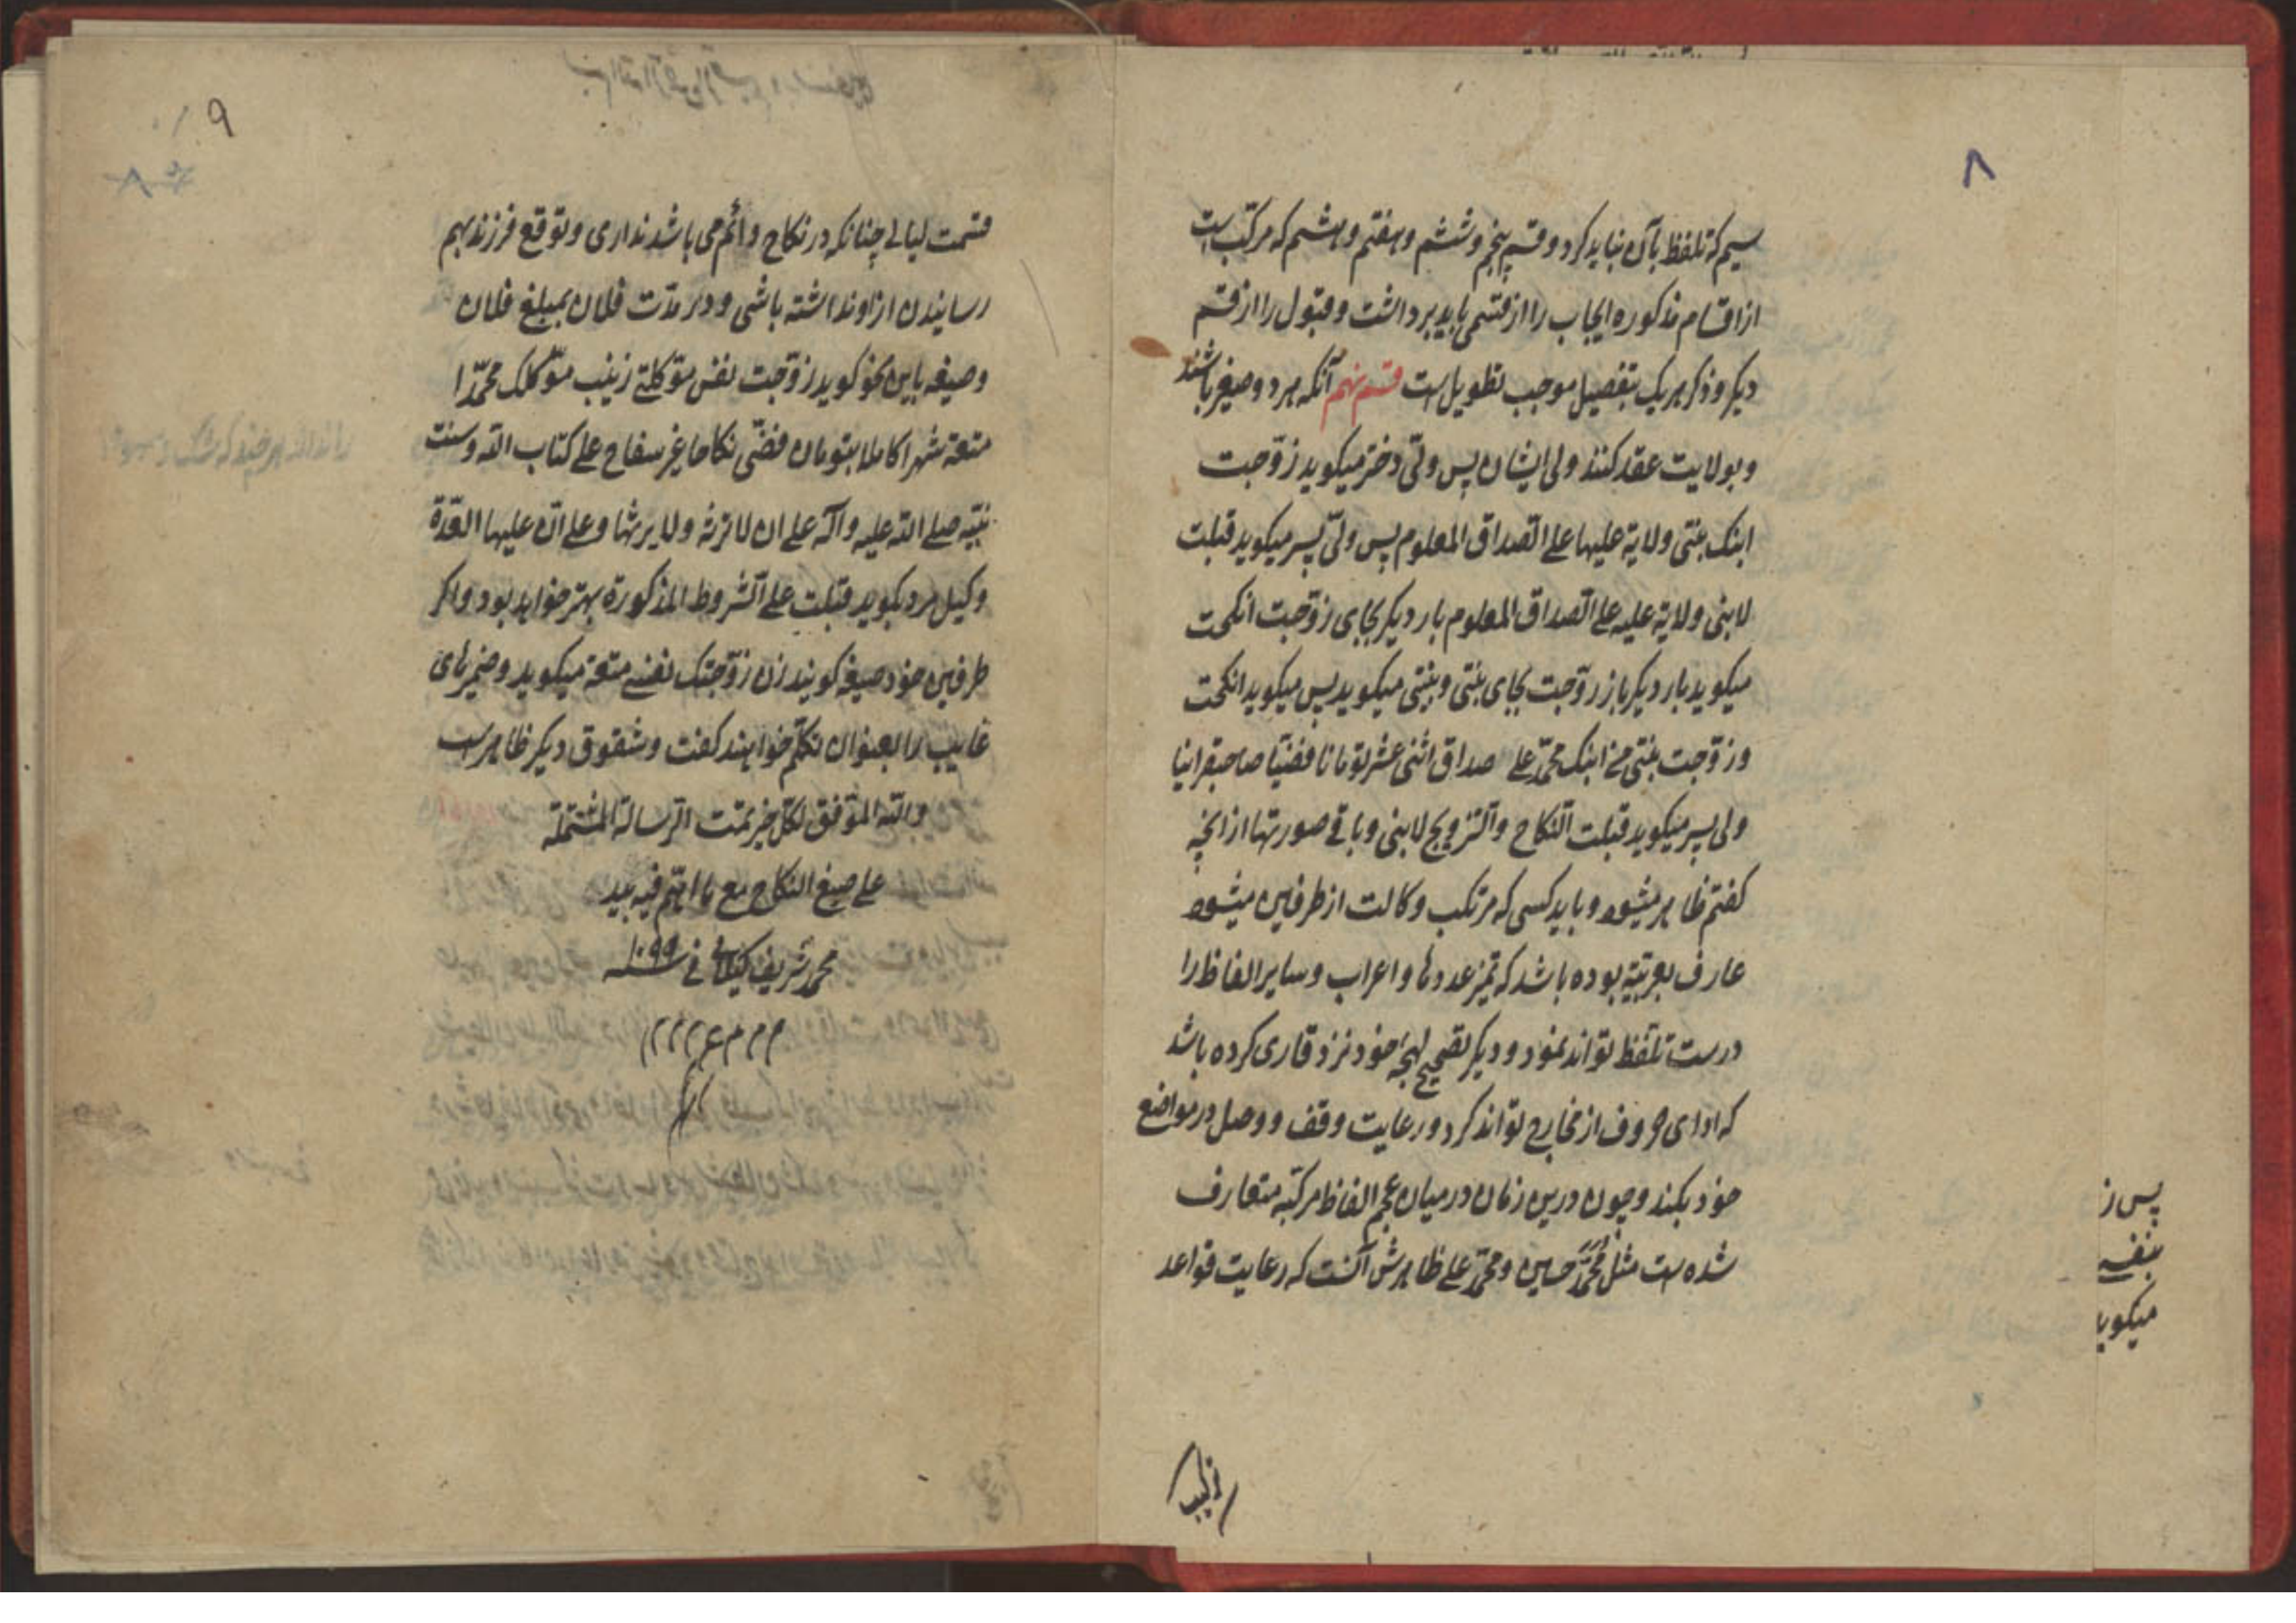 ۸
سیم که تلفظ بآن نباید کرد و قسم پنجم و ششم و هفتم و هشتم که مرکبست
از اقسام مذکوره ایجاب را از قسمی باید برداشت و قبول را از قسم
دیکر و ذکر هر یک بتفصیل موجب تطویل است قسم نهم آنکه هر دو صغیر باشند
و بولایت عقد کنند ولی ایشان پس ولیّ دختر میکوید زوّجت
ابنک بنتی ولایة علیها علی الصّداق المعلوم پس ولیّ پسر میکوید قبلت
لابنی ولایة علیه علی الصّداق المعلوم بار دیکر بجای زوّجت انکحت
میکوید بار دیکر باز زوّجت بجای بنتی و بنتی میکوید پس میکوید انکحت
و زوّجت بنتی من ابنک محمّد علی صداق اثنی عشر تومانا فضّیّا صاحبقرانیا
ولی پسر میکوید قبلت النّکاح و التّزویج لابنی و باقی صورتها از آنچه
کفتم ظاهر میشود و باید کسی که مرتکب وکالت از طرفین میشود
عارف بعربیّة بوده باشد که تمیز عددها و اعراب و سایر الفاظ را
درست تلفّظ تواند نمود و دیکر تصحیح لهجهٔ خود نزد قاری کرده باشد
که ادای حروف از مخارج تواند کرد و رعایت وقف و وصل در مواضع
خود بکند و چون درین زمان در میان عجم الفاظ مرکّبه متعارف
شده است مثل محمّد حسین و محمّد علی ظاهرش آنست که رعایت قواعد
پس ز
بنفسه
میکوید
۹
قسمت لیالی چنانکه در نکاح دائم می باشد نداری و توقع فرزند بهم
رسانیدن از او نداشته باشی و در مدّت فلان بمبلغ فلان
و صیغه باین نحو کوید زوّجت نفس موکلتی زینب موکّلک محمّدا
متعة شهرا کاملا بتومان فضّی نکاحا غیر سفاح علی کتاب الله و سنت
نبیّه صلی الله علیه و آله علی ان لا ترثه و لا یرثها و علی انّ علیها العدّة
وکیل مرد بکوید قبلت علی الشّروط المذکورة بهتر خواهد بود و اکر
طرفین خود صیغه کویند زن زوّجتک نفسی متعة میکوید و ضمیرهای
غایب را بعنوان تکلّم خواهند کفت و شقوق دیکر ظاهر است
والله الموفّق لکلّ خیر تمت الرّسالة المشتملة
علی صیغ النکاح مع ما اهتم فیه بید
محمد شریف کیلانی فی سنه ۱۰۹۹